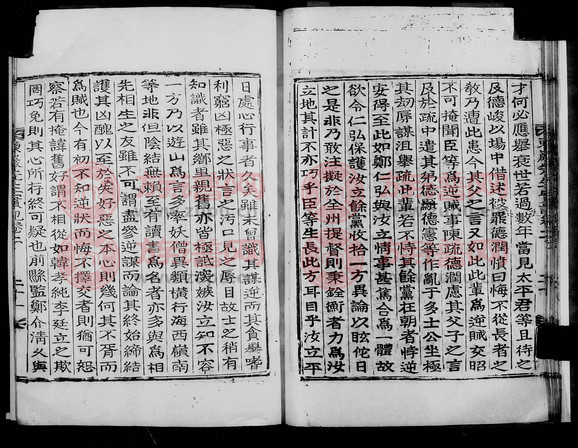 才何必應舉衰世若過數年當見太平君等且待之
及德峻以場中借述被罪德潤憤曰悔不從長者之
敎乃遭此患今其父之言又如此此輩爲逆賊交昵
不可掩聞臣等爲逆賊事陳疏德潤慮其父子之言
及於疏中遣其弟德顯德憲等作亂于多士公坐極
其刼辱謀沮舉疏此輩若不恃其餘黨在朝者悖
安得至此如鄭仁弘與汝立情事甚合爲一體故
欲令仁弘保護汝立餘黨收拾一方異論以眩佗日
之是非乃敢注擬於全州提督則秉銓衡者力爲汝
立地其計不亦巧乎臣等生長此方耳目乎汝立平
日處心行事者久矣雖未曾識其謀逆而其貪饕嗜
利窮凶極惡之狀言之汚口見之辱目故士之稍有
知識者雖其鄕里親舊亦皆極詆深嫉汝立知不容
一方乃以遊山爲言多率妖僧異類橫行海西嶺南
等地非但陰結無賴至有讀書爲名者亦多與爲相
先相生之友雖不可謂盡參逆謀而論其終始締結
護其凶醜以至於失好惡之本心則幾何其不胥而
爲賊也今有初不知逆狀而悔不擇交者則猶可恕
察若有掩諱舊好謂不相從如韓孝純李廷立之欺
罔巧免則其心所行終可疑也前縣監鄭介淸久與